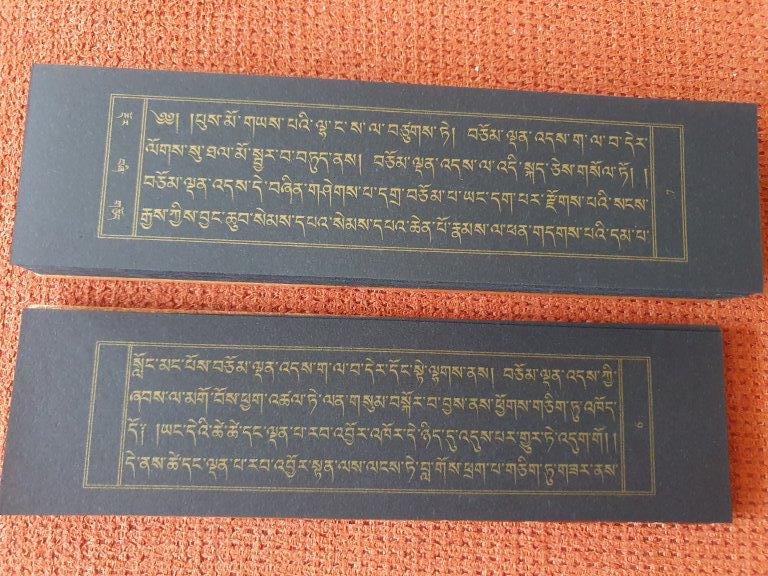 ༄༅། །པུས་མོ་གཡས་པའི་ལྷ་ང་ས་ལ་བཙུགས་ཏེ། བཅོམ་ལྡན་འདས་ག་ལ་བ་དེར་
ལོགས་སུ་ཐལ་མོ་སྦྱར་བ་བཏུད་ནས། བཅོམ་ལྡན་འདས་ལ་འདི་སྐད་ཅེས་གསོལ་ཏོ། །
བཅོམ་ལྡན་འདས་དེ་བཞིན་གཤེགས་པ་དགྲ་བཅོམ་པ་ཡང་དག་པར་རྫོགས་པའི་སངས་
རྒྱས་ཀྱིས་བྱང་ཆུབ་སེམས་དཔའ་སེམས་དཔའ་ཆེན་པོ་རྣམས་ལ་ཕན་གདགས་པའི་དམ་པ་
སློང་མང་པོས་བཅོམ་ལྡན་འདས་ག་ལ་བ་དེར་དོང་སྟེ་ལྷགས་ནས། བཅོམ་ལྡན་འདས་ཀྱི་
ཞབས་ལ་མགོ་བོས་ཕྱག་འཚལ་ཏེ་ལན་གསུམ་བསྐོར་བ་བྱས་ནས་ཕྱོགས་གཅིག་ཏུ་འཁོད་
དོ༑ །ཡང་དེའི་ཚེ་ཚེ་དང་ལྡན་པ་རབ་འབྱོར་འཁོར་དེ་ཉིད་དུ་འདུས་པར་གྱུར་ཏེ་འདུག་གོ། །
དེ་ནས་ཚེ་དང་ལྡན་པ་རབ་འབྱོར་སྟན་ལས་ལངས་ཏེ་བླ་གོས་ཕྲག་པ་གཅིག་ཏུ་གཟར་ནས་